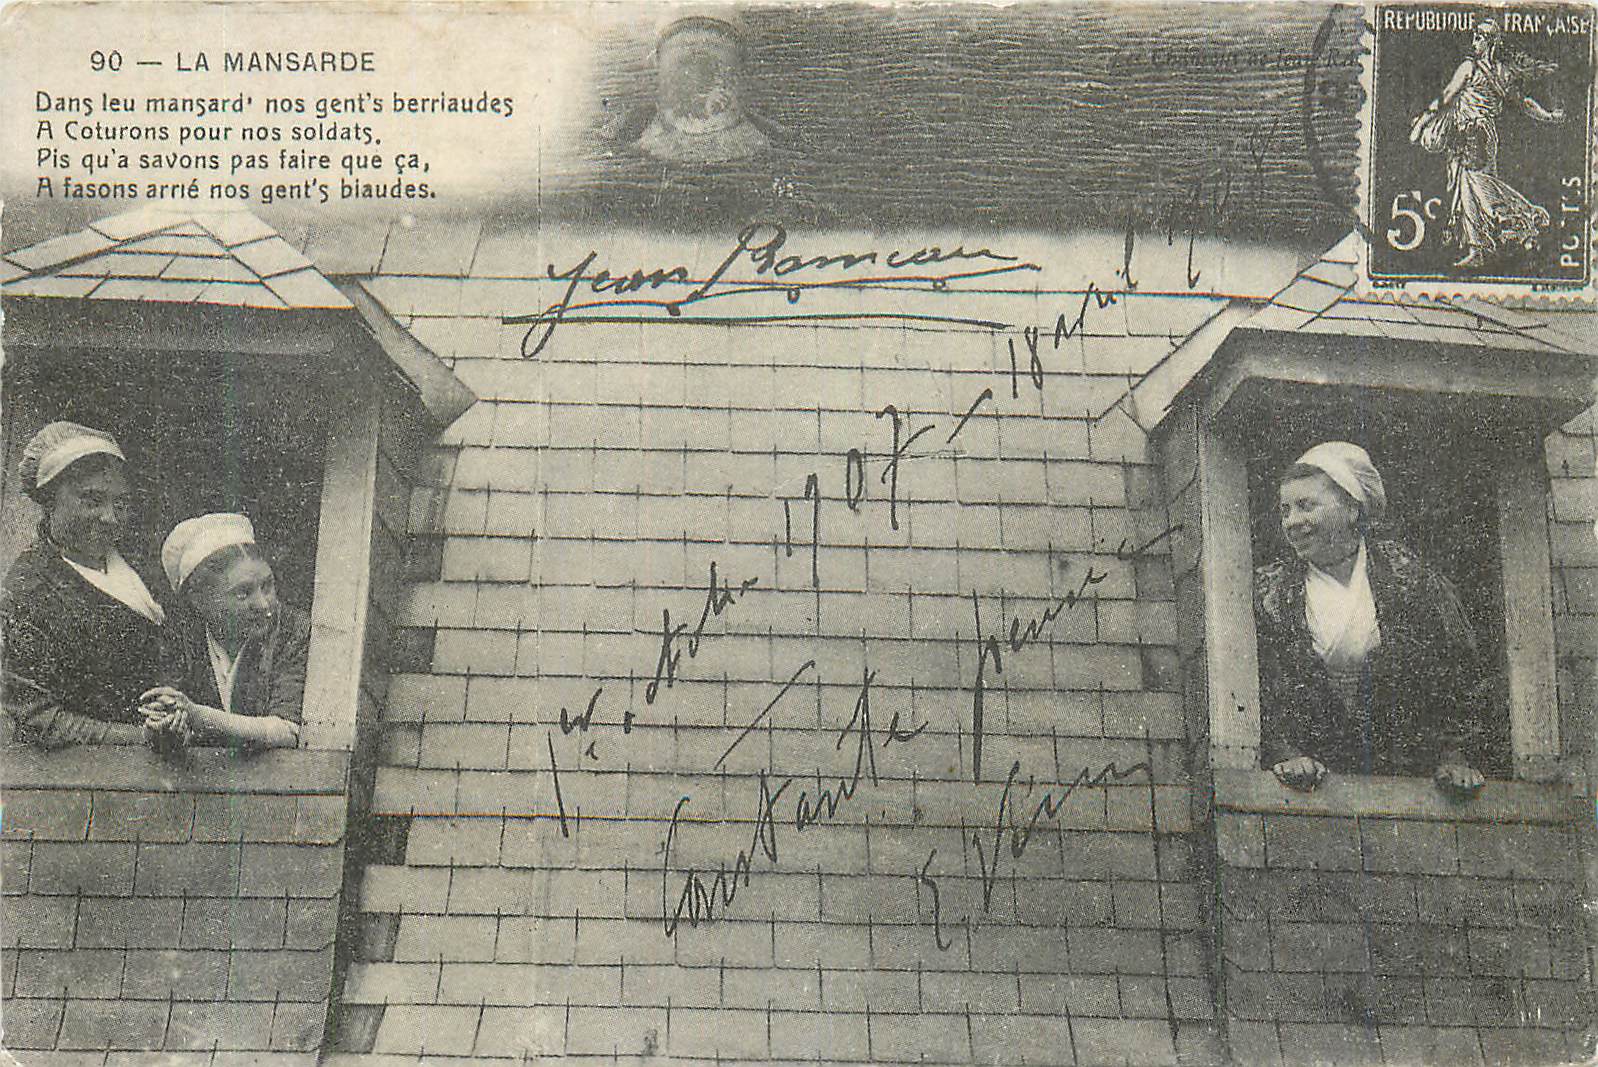 90 — LA MANSARDE
Dans leu mansard' nos gent's berriaudes
A Coturons pour nos soldats.
Pis qu'a savons pas faire que ça,
A fasons arrié nos gent's biaudes.
Les Chansons de Jean
REPUBLIQUE FRANÇAISE
5c
POSTES
Jean Rameau
1er octobre 1907 — 18 avril
Constante pensée
E.